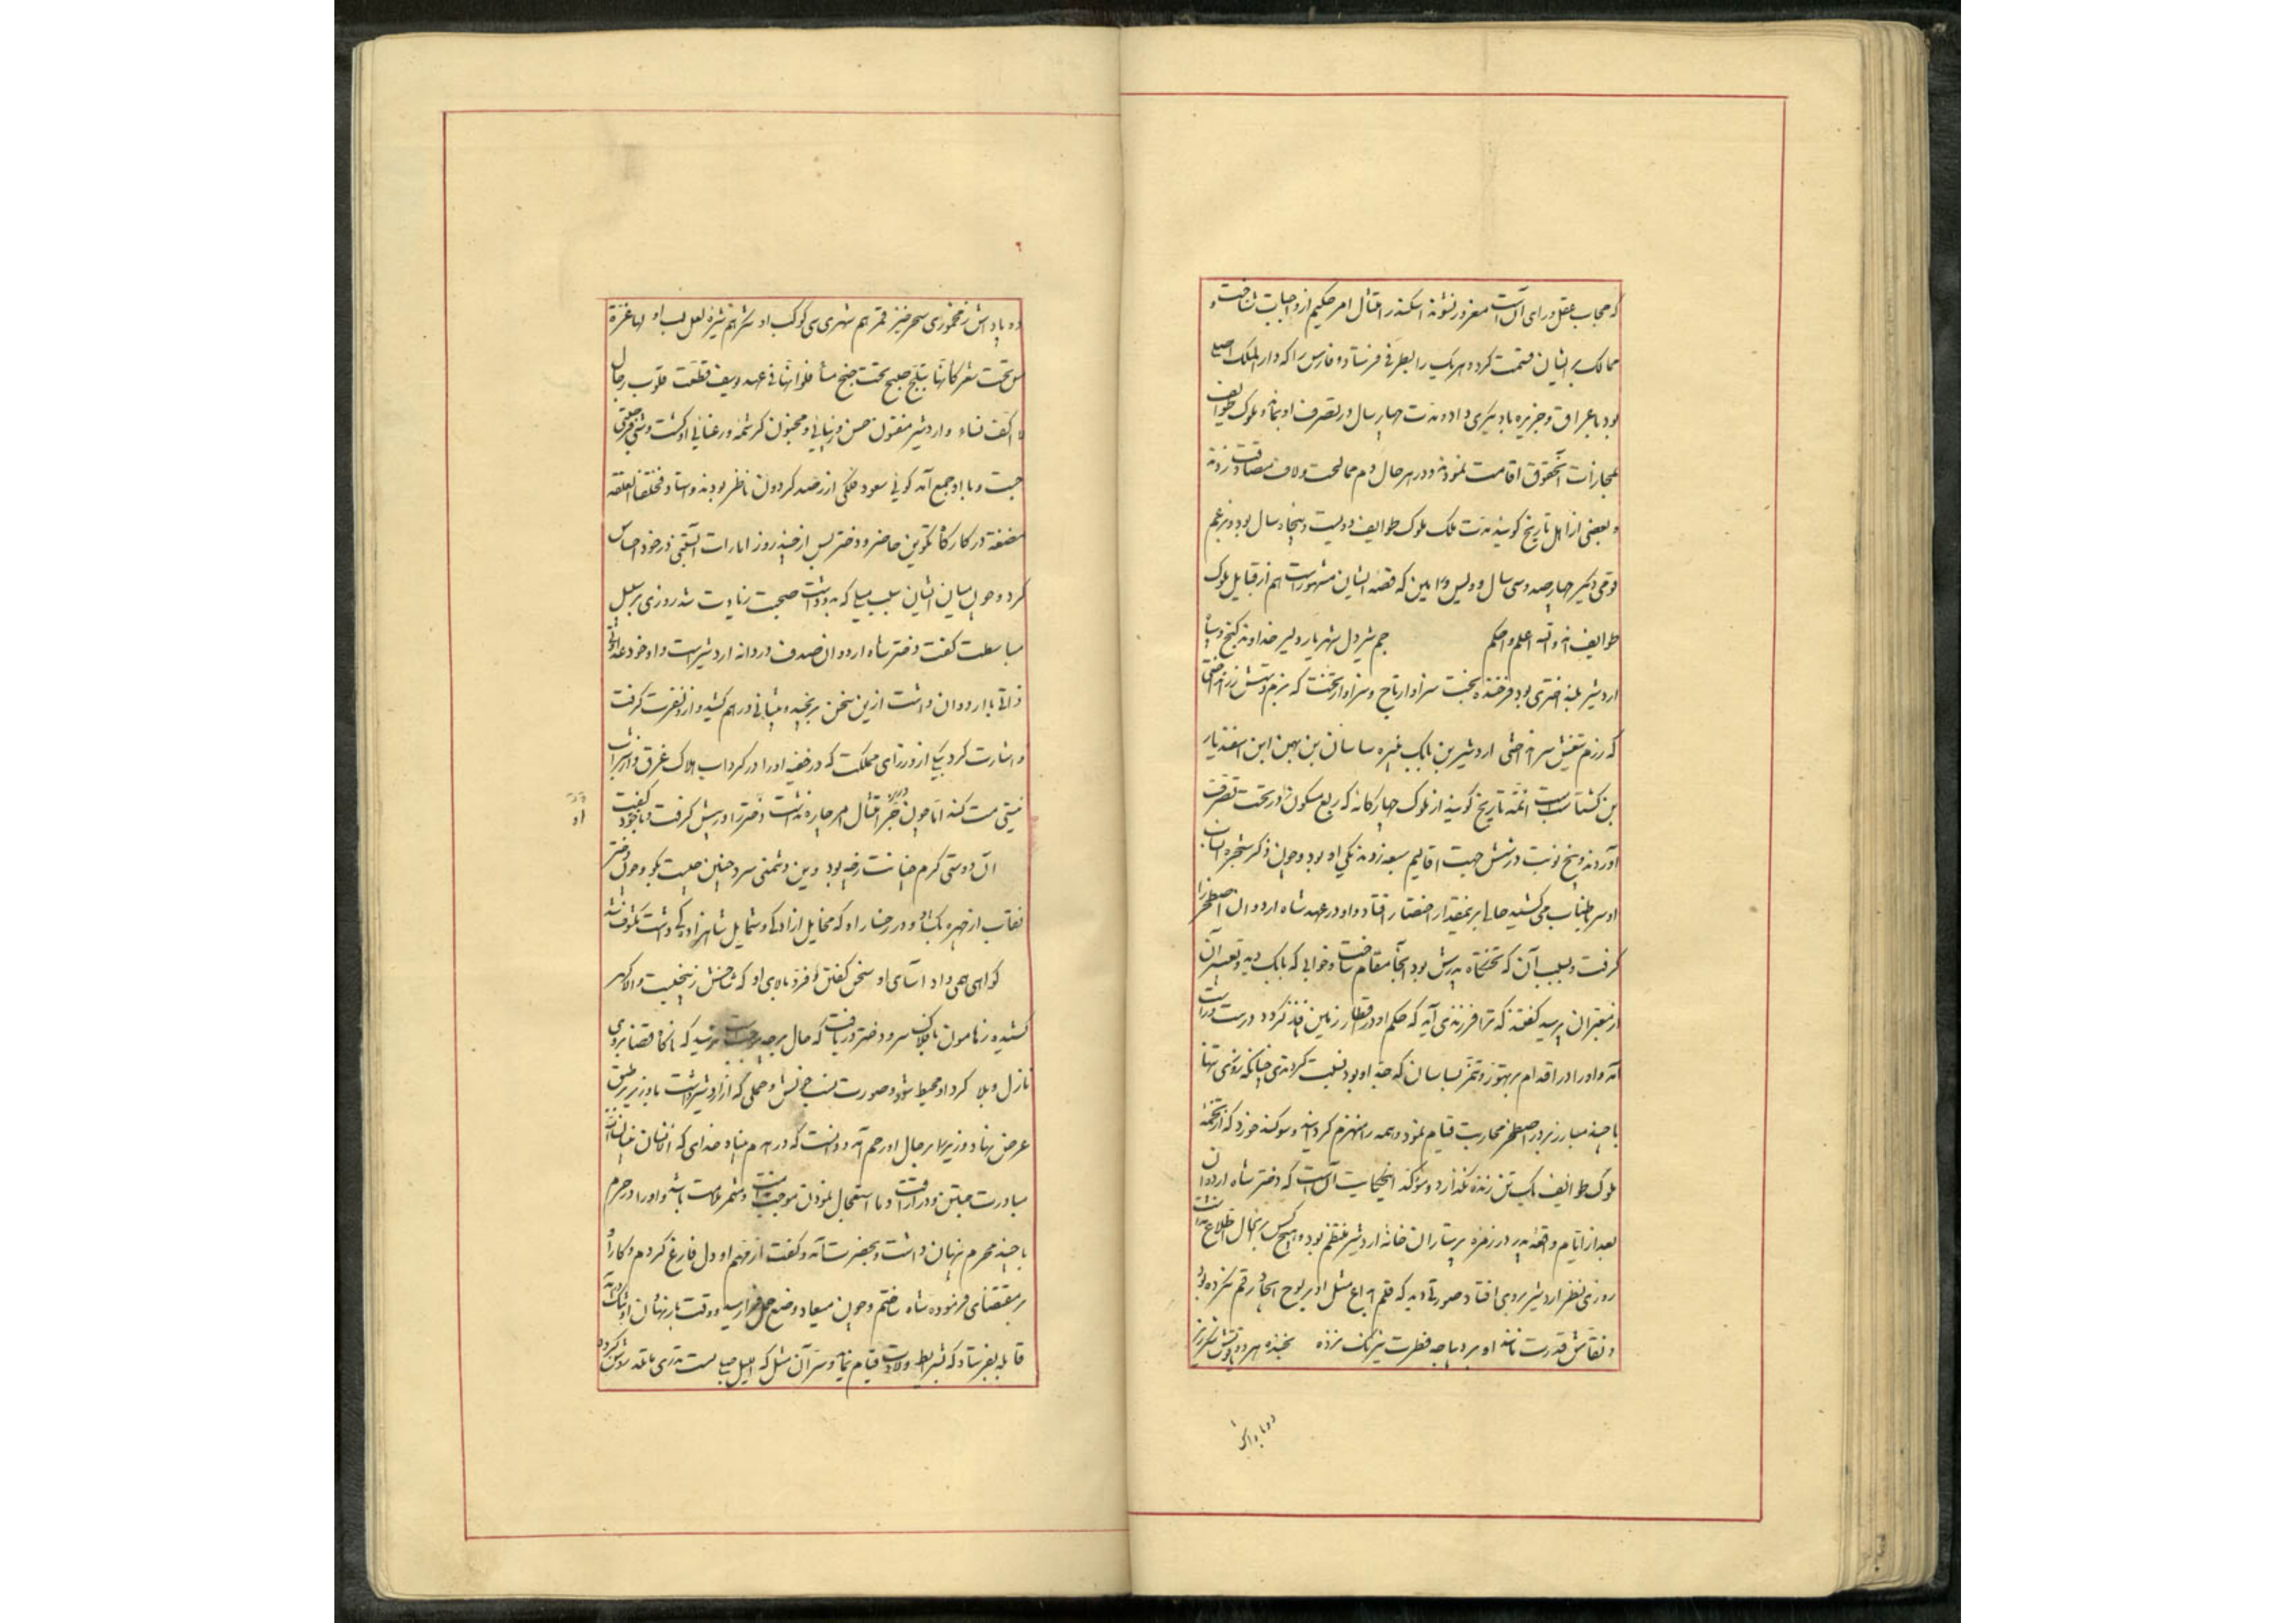 که حجاب عقل ورای آنست مغرور نشوند اسکندر امتثال امر حکیم از واجبات شناخت و
ممالک بر ایشان قسمت کرد و هر یک را بطرفی فرستاد و فارس را که دار الملک اصلی
بود با عراق و جزیره بدیگری داد و مدت چهار سال در تصرف او بماند و ملوک طوایف
بمجازات آنحقوق اقامت نمودند و در هر حال دم ممالحت و لاف مصادقت زدند
و بعضی از اهل تاریخ گویند مدت ملک ملوک طوایف دویست و پنجاه سال بود و بزعم
قومی دیگر چهارصد و سی سال و ویس و رامین که قصه ایشان مشهورست هم از قبایل ملوک
طوایف اند والله اعلم و احکم جم شیر دل شهریار دلیر خداوند گنج و سپاه
اردشیر بلند اختری بود فرخنده بخت سزاوار تاج و سزاوار تخت که بزم دستش زر افشی
که رزم تیغش سر افشی اردشیر بن بابک نبیره ساسان بن بهمن ابن اسفندیار
بن گشتاسب است ائمه تاریخ گویند از ملوک چهارگانه که ربع مسکون در تحت تصرف
آوردند و پنج نوبت در شش جهت اقالیم سبعه زدند یکی او بود و چون ذکر شجره انساب
او سر باطناب می کشید حالی بر نمقدار اختصار افتاد و او در عهد شاه اردوان اصطخر را
گرفت و بسبب آن که تختگاه پدرش بود آنجا مقام ساخت و خوابی که بابک دید و تعبیر آن
از معبران پرسید گفتند که ترا فرزندی آید که حکم او در اقطار زمین نافذ گردد درست و راست
آمد و او را در اقدام بر تهور و تنمر بساسان که جد او بود نسبت کردندی چنانکه روزی تنها
با چند مبارز بر در اصطخر محاربت قیام نمود و همه را منهزم گردانید و سوگند خورد که از تخمه
ملوک طوایف یک تن زنده نگذارد و مؤکد اینحکایت آنست که دختر شاه اردوان
بعد از ایام واقعه پدر در زمره پرستاران خانه اردشیر منتظم بود و هیچ کس بر نحال اطلاع نداشت
روزی نظر اردشیر بر وی افتاد صورتی دید که قلم ابداع مثل او بر لوح ایجاد رقم نزده بود
و نقاش قدرت مانند او بر دیباچه فطرت نیرنگ نزده بخنده هر دو یاقوتش شکرریز
دو بادامش
دو بادامش ز مخموری سحر خیز قمر هم شهری سی کوکب او شکر هم شیره لعل لب او لها غرة
تحت شعر کانها تبلج صبح تحت جنح مساء فلو انها فی عهد یوسف قطعت قلوب رجال
لا اکف نساء و اردشیر مفتون حسن و زیبائی و مجنون کرشمه و رعنائی او گشت و شبی فرصتی
جست و با او جمع آمد گوئی سعود فلکی از رصد گردون ناظر بودند و استاد فخلقنا العلقة
مضغة در کارگاه تکوین حاضر و دختر پس از چند روز امارات آبستنی در خود احساس
کرد و چون میان ایشان بسبب میلی که بود داشت صحبت زیادت شد روزی بر سبیل
مباسطت گفت دختر شاه اردوان صدف دردانه اردشیرست و او خود عداوت
ذاتی با اردوان داشت ازین سخن برنجید و پیشانی در هم کشید و ازو نفرت گرفت
و اشارت کرد بیکی از وزرای مملکت که در خفیه او را در گرداب هلاک غرق و از شراب
نیستی مست کند اما چون وزیر جز امتثال امر چاره نداشت دختر را در پیش گرفت و با خود گفت
آن دوستی گرم چنانت ز چه بود وین دشمنی سرد چنین چیست بگو و چون دختر
نقاب از چهره بگشاد و در رخسار او که مخایل آزادگی و شمایل شاهزادگی داشت مکشوف شد
گواهی همی داد آسای او سخن گفتن و فر و بالای او که شاخش ز بیخیست والا گهر
کشیده ز هامون بافلاک سر و دختر دریافت که حال بر چه موجب است ترسید که ناگاه قضا بر وی
نازل و بلا گرد او محیط شود صورت نسب خویش و حملی که از اردشیر داشت با وزیر بر طبق
عرض نهاد وزیر را بر حال او رحم آمد و دانست که در هدم بناه خدای که الانسان بنیان الله
مبادرت جستن و در اراقت دما استعجال نمودن موجب ندامت و مثمر ملامت باشد و او را در حرم
با چند محرم نهان داشت و بحضرت آمد و گفت از مهم او دل فارغ کردم و کار او
بر مقتضای فرموده شاه ساختم و چون میعاد وضع حمل فرا رسید و وقت بار نهادن او نزدیک آمد
قابله بفرستاد که بشرایط ولادت قیام نماید